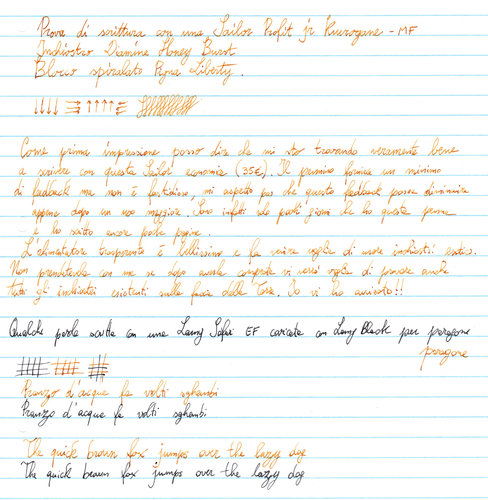 Prova di scrittura con una Sailor Profit jr Kurogane - MF
Inchiostro Diamine Honey Burst
Blocco spiralato Pigna Liberty.
Come prima impressione posso dire che mi sto trovando veramente bene
a scrivere con questa Sailor economica (35€). Il pennino fornisce un minimo
di feedback ma non è fastidioso, mi aspetto poi che questo feedback possa diminuire
appena dopo un uso maggiore. Sono infatti solo pochi giorni che ho questa penna
e ho scritto ancora poche pagine.
L'alimentatore trasparente è bellissimo e fa venire voglia di usare inchiostri
Non prendetevela con me se dopo averla comprata vi verrà voglia di provare anche
tutti gli inchiostri esistenti sulla faccia della Terra. Io vi ho avvisato!!
Qualche parola scritta con una Lamy Safari EF caricata con Lamy Black per paragone
paragone
Pranzo d'acqua fa volti sghembi
Pranzo d'acqua fa volti sghembi
The quick brown fox jumps over the lazy dog
The quick brown fox jumps over the lazy dog